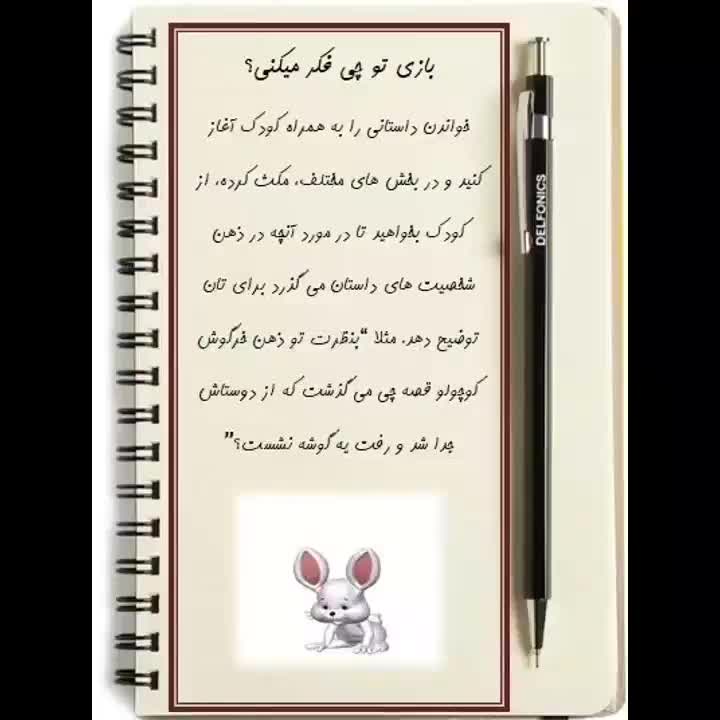 بازی تو چی فکر میکنی؟
خواندن داستانی را به همراه کودک آغاز
کنید و در بخش های مختلف، مکث کرده، از
کودک بخواهید تا در مورد آنچه در ذهن
شخصیت های داستان می گذرد برای تان
توضیح دهد. مثلا "بنظرت تو ذهن خرگوش
کوچولو قصه چی می گذشت که از دوستاش
جدا شد و رفت یه گوشه نشست؟"
DELFONICS